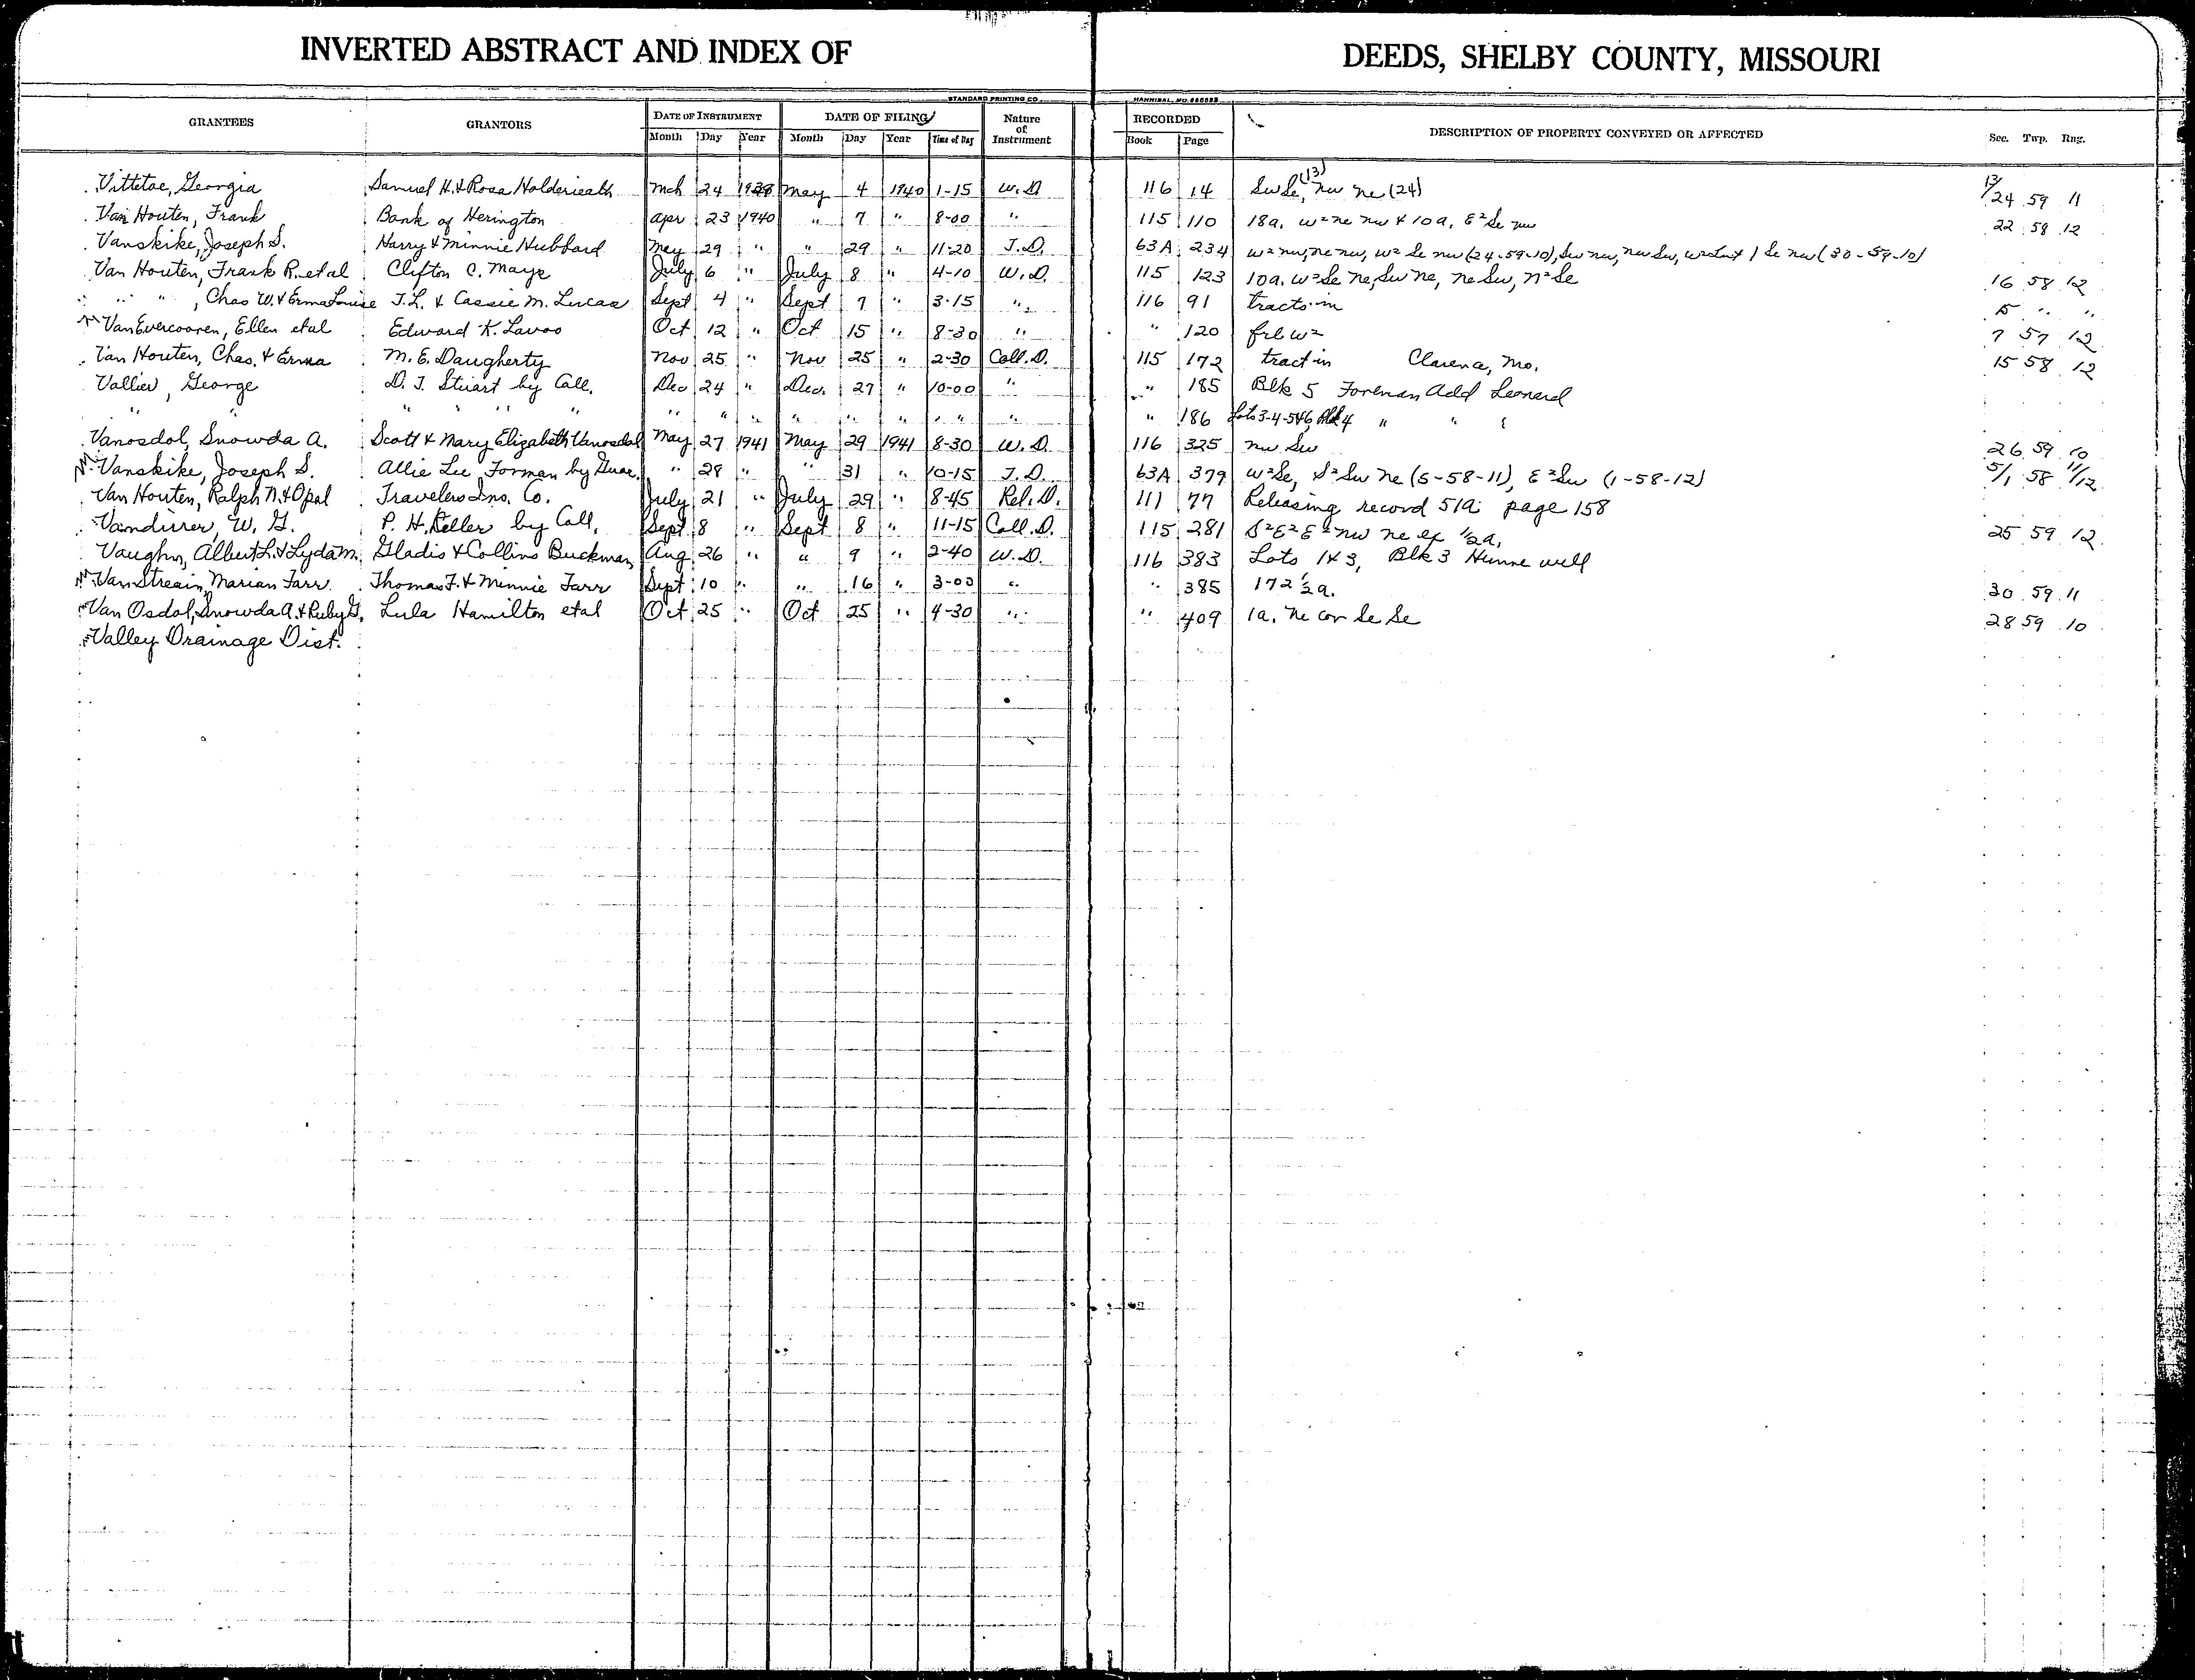 INVERTED ABSTRACT AND INDEX OF DEEDS, SHELBY COUNTY, MISSOURI
STANDARD PRINTING CO. HANNIBAL, MO.
GRANTEES GRANTORS DATE OF INSTRUMENT DATE OF FILING Nature of Instrument RECORDED DESCRIPTION OF PROPERTY CONVEYED OR AFFECTED Sec. Twp. Rng.
Month Day Year Month Day Year Time of Day Book Page
Vittetoe, Georgia Samuel H. & Rosa Holderieath Mch 24 May 4 1940 1-15 W.D 116 14 Sw Se, (13) nw ne (24) 13/24 59 11
Van Houten, Frank Bank of Herington Apr 23 1940 " 7 " 8-00 " 115 110 18a. w² ne nw & 10a. E² Se nw 22 58 12
Vanskike, Joseph S. Harry & Minnie Hubbard May 29 " " 29 " 11-20 T.D. 63A 234 w² nw, ne nw, w² Se nw (24-59-10), Sw nw, nw Sw, 1 Se nw (30-59-10)
Van Houten, Frank R. et al Clifton C. Maye July 6 " July 8 " 4-10 W.D. 115 123 10a. w² Se ne, Sw ne, ne Sw, n² Se 16 58 12
" " , Chas W. & Erma Louise T.L. & Cassie M. Lucas Sept 4 " Sept 7 " 3-15 " 116 91 tracts in 5 " "
Van Evercooren, Ellen et al Edward K. Lavoo Oct 12 " Oct 15 " 8-30 " " 120 frl w² 7 57 12
Van Houten, Chas. & Erma M. E. Daugherty Nov 25 " Nov 25 " 2-30 Coll. D. 115 172 tract in Clarence, Mo. 15 58 12
Vallier, George D. T. Stuart by Coll. Dec 24 " Dec. 27 " 10-00 " " 185 Blk 5 Foreman Add Leonard
" " " " " " " " " " " " " " " 186 Lots 3-4-5&6, Blk 4 " " "
Vanosdol, Snowda A. Scott & Mary Elizabeth Vanosdol May 27 1941 May 29 1941 8-30 W.D. 116 325 nw Sw 26 59 10
Vanskike, Joseph S. Allie Lee Forman by Guar. " 28 " " 31 " 10-15 T.D. 63A 379 w² Se, S² Sw ne (5-58-11), E² Sw (1-58-12) 5/1 58 11/12
Van Houten, Ralph N. & Opal Travelers Ins. Co. July 21 " July 29 " 8-45 Rel. D. 111 77 Releasing record 51a page 158
Vandiver, W. G. P. H. Keller by Coll. Sept 8 " Sept 8 " 11-15 Coll. D. 115 281 S² E² E² nw ne ex ½a. 25 59 12
Vaughn, Albert L. & Lyda M. Gladis & Collins Buckman Aug 26 " " 9 " 2-40 W.D. 116 383 Lots 1 & 3, Blk 3 Hunne well
Van Streain, Marian Farr Thomas F. & Minnie Farr Sept 10 " " 16 " 3-00 " " 385 172½a. 30 59 11
Van Osdol, Snowda A. & Ruby G. Lula Hamilton et al Oct 25 " Oct 25 " 4-30 " " 409 1a. ne cor Se Se 28 59 10
Valley Drainage Dist.